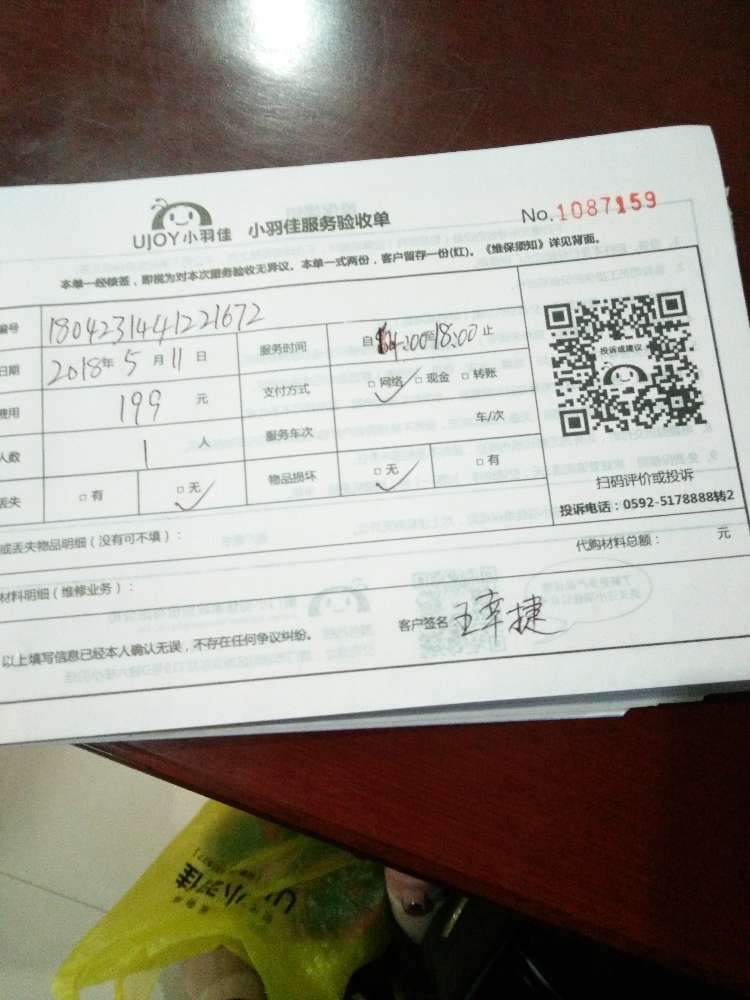 UJOY小羽佳 小羽佳服务验收单 No.1087159
本单一经续签，即视为对本次服务验收无异议。本单一式两份，客户留存一份(红)。《维保须知》详见背面。
编号 1804231441221672
日期 2018年5月11日 服务时间 自14:00至18:00止
费用 199 元 支付方式 □网络 □现金 □转账
人数 1 人 服务车次 车/次
丢失 □有 □无 物品损坏 □无 □有
投诉或建议
扫码评价或投诉
投诉电话：0592-5178888转2
或丢失物品明细（没有可不填）：
材料明细（维修业务）： 代购材料总额： 元
以上填写信息已经本人确认无误，不存在任何争议纠纷。 客户签名 王幸捷
UJOY小羽佳